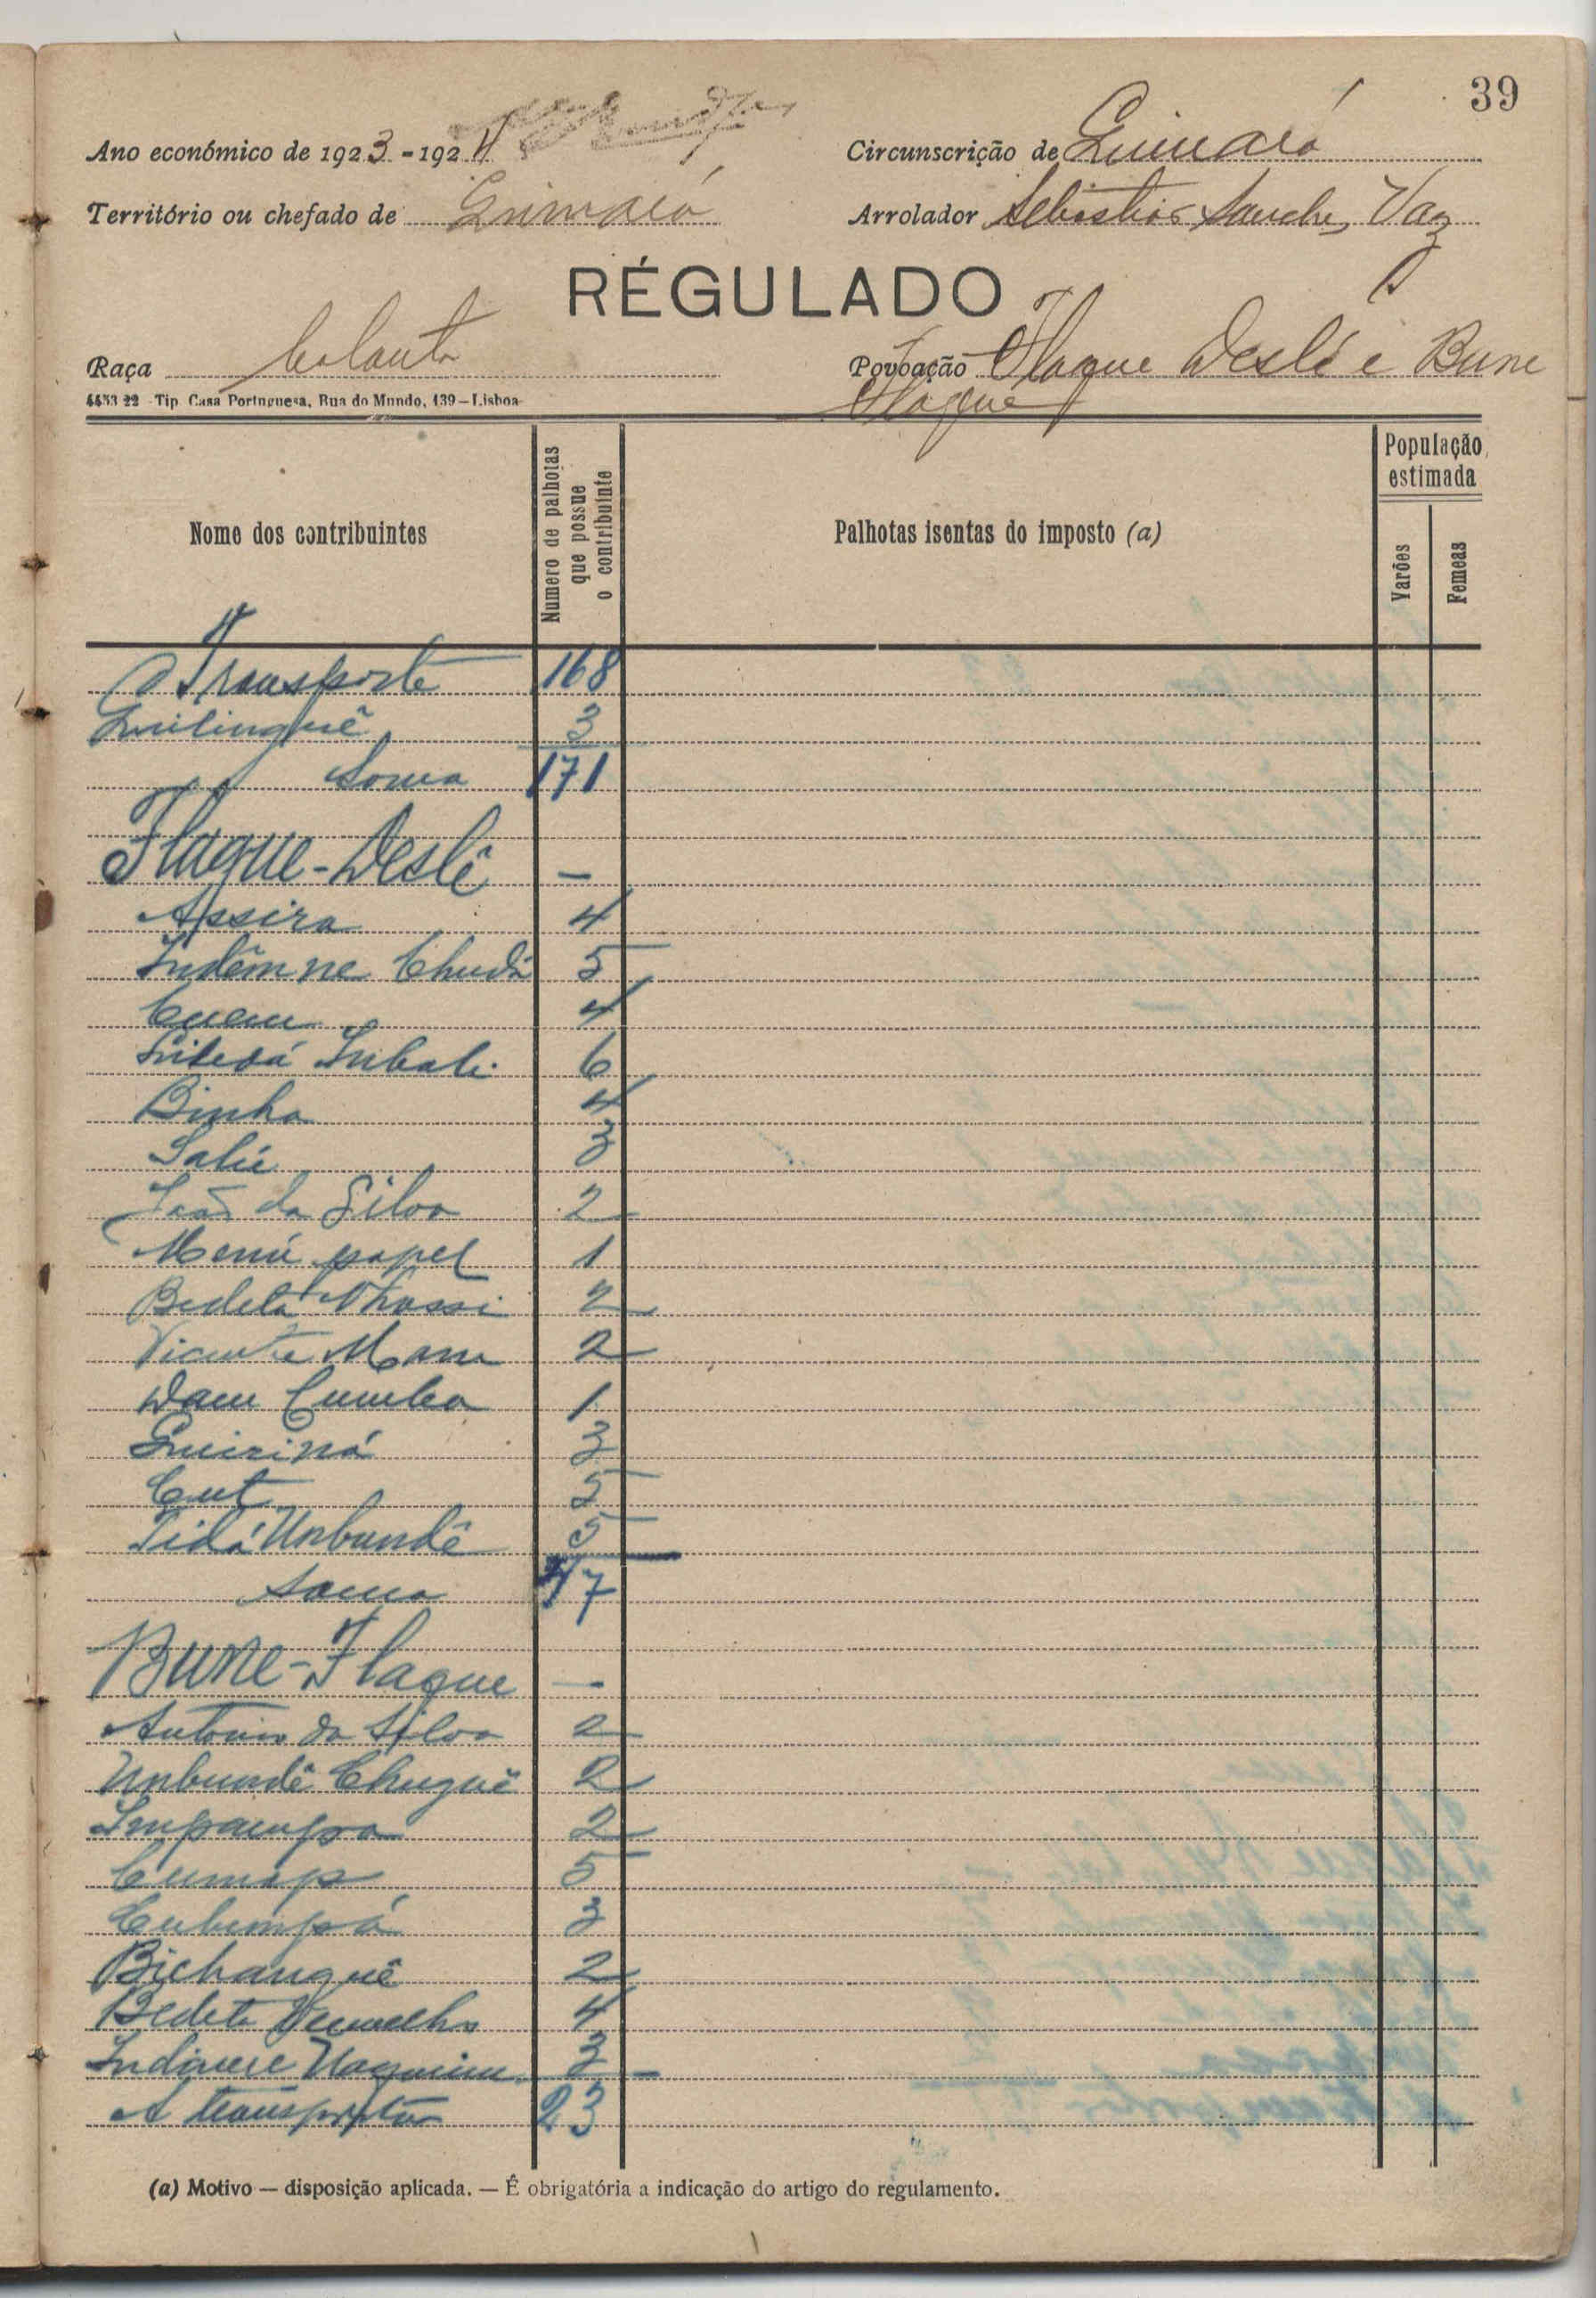 39
Ano económico de 1923-1924
Circunscrição de
Território ou chefado de
Arrolador Sebastião Sanches Vaz
RÉGULADO
Raça Balanta
Povoação Flaque Deslé e Bune
Flaque
4453 22 - Tip. Casa Portuguesa, Rua do Mundo, 139-Lisboa
Nome dos contribuintes
Numero de palhotas que possue o contribuinte
Palhotas isentas do imposto (a)
População estimada
Varões
Femeas
Transporte 168
3
Soma 171
Flaque-Deslê —
Assira 4
Indêmne Chudá 5
Cuem 4
6
Binha 4
Salú 3
João da Silva 2
Menú papel 1
2
Vicente Mané 2
Dam Cumba 1
3
Cut 5
Tidá Unbundê 5
Soma 47
Bune-Flaque —
Antonio da Silva 2
Unbundê Chuguê 2
Impampa 2
5
3
Bichanguê 2
Bedeta Vermelho 4
3
A transportar 23
(a) Motivo — disposição aplicada. — É obrigatória a indicação do artigo do regulamento.